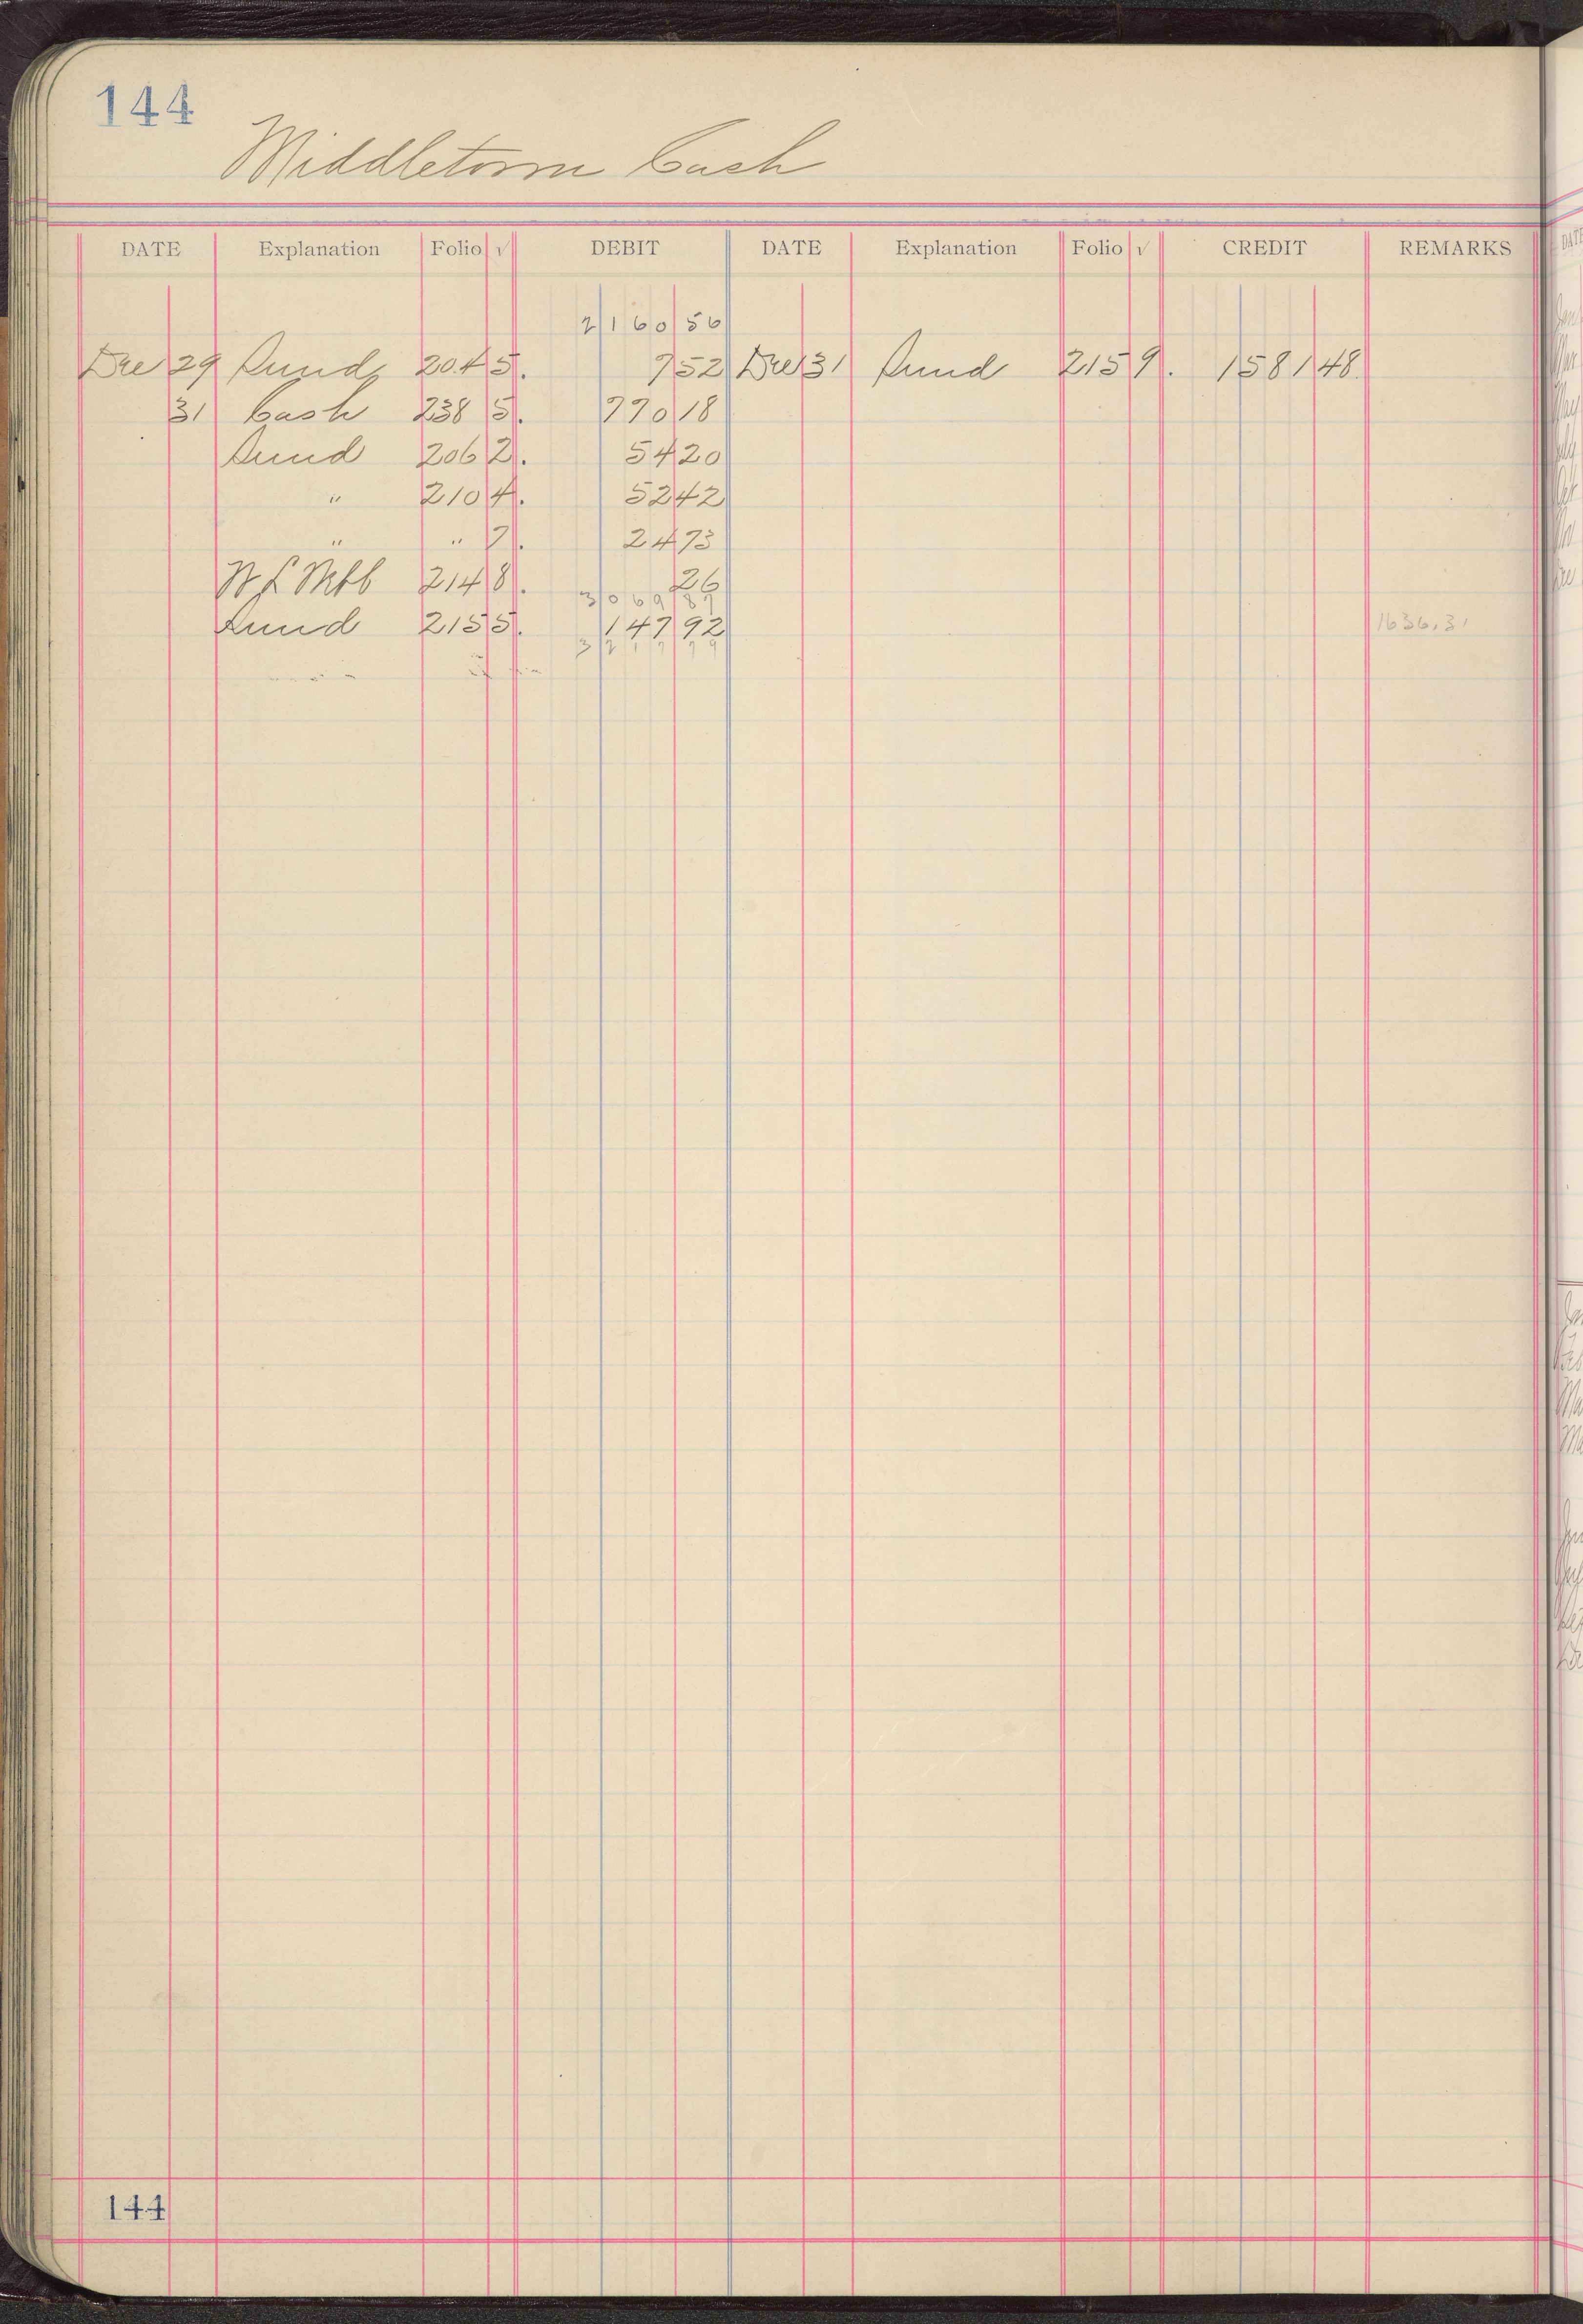 144
Middletown Cash
DATE Explanation Folio √ DEBIT DATE Explanation Folio √ CREDIT REMARKS
2160 56
Dec 29 Sund 2045. 7 52 Dec 31 Sund 2159. 1581 48
31 Cash 2385. 770 18
Sund 2062. 54 20
" 2104. 52 42
" " 7. 24 73
2148. 26
3069 87
Sund 2155. 147 92 1636.31
3217 79
144